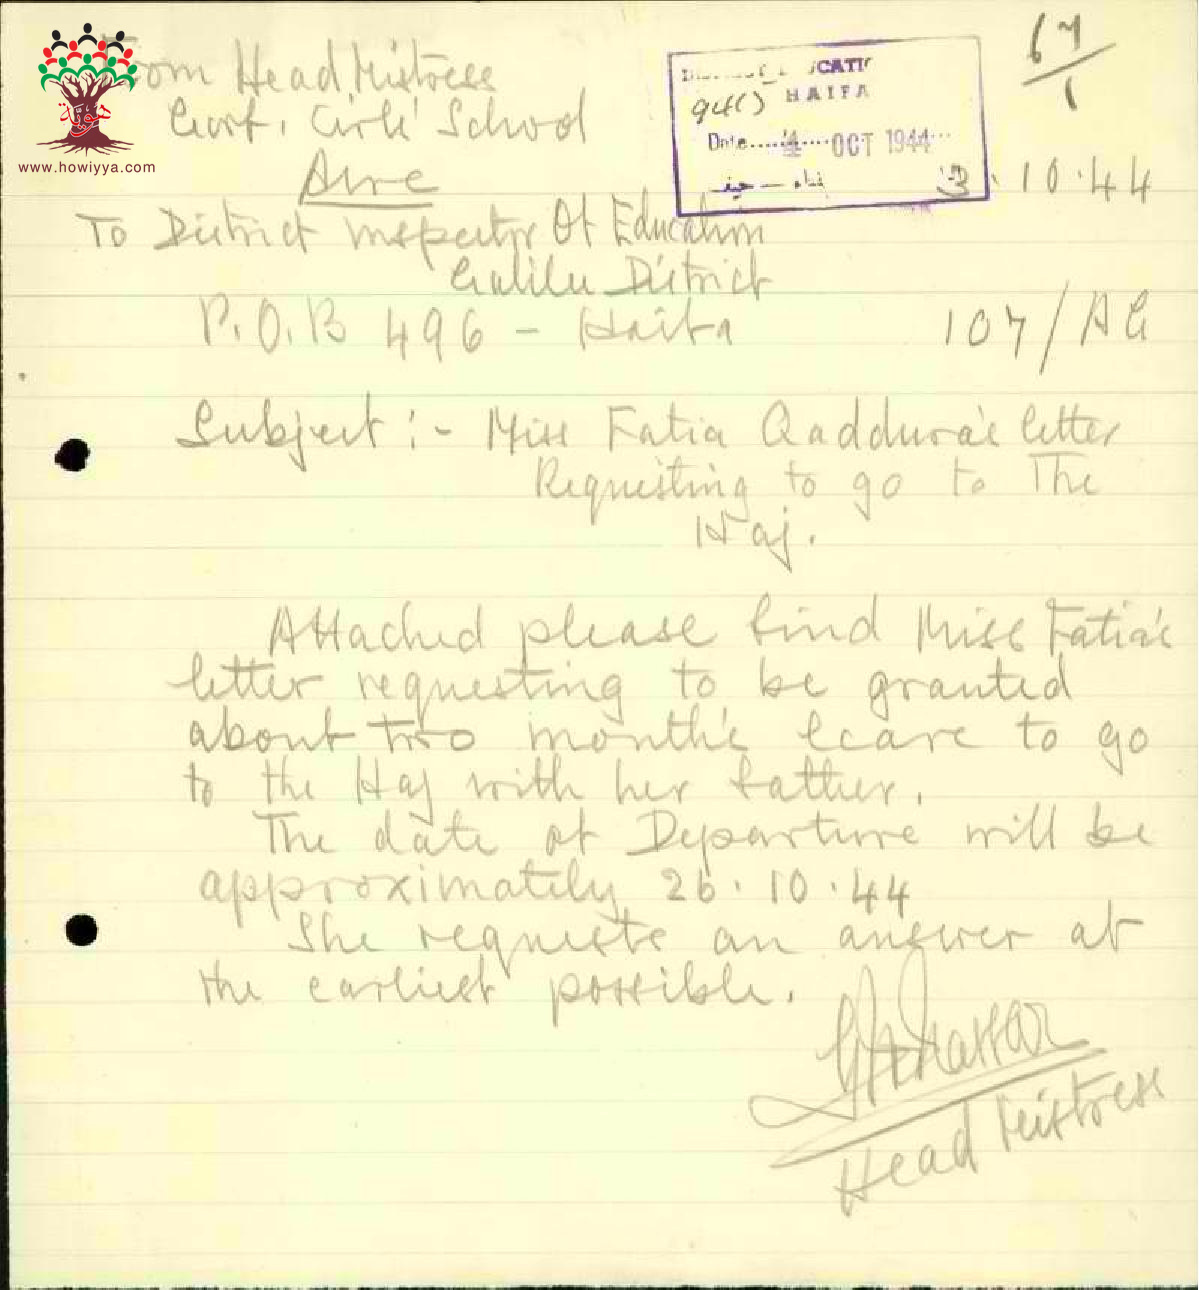 From Head Mistress
Govt. Girls' School
Acre
67/1
HAIFA
Date 4 OCT 1944
3.10.44
هوية
www.howiyya.com
To District Inspector Of Education
Galilee District
P.O.B 496 - Haifa
107/AG
Subject :- Miss Fatia Qaddura's letter
Requesting to go to The
Haj.
Attached please find Miss Fatia's
letter requesting to be granted
about two month's leave to go
to the Haj with her father.
The date of Departure will be
approximately 26.10.44
She requests an answer at
the earliest possible.
Head Mistress